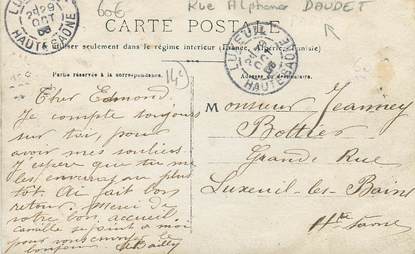 60€
Rue Alphonse DAUDET
CARTE POSTALE
A utiliser seulement dans le régime intérieur (France, Algérie, Tunisie)
Partie réservée à la correspondance.
Adresse du destinataire.
LUXEUIL
29
OCT
HAUTE-SAONE
Cher Edmond,
Je compte toujours
sur toi, pour
avoir mes souliers
J'espère que tu me
les enverras au plus
tôt. Ai fait bon
retour. Merci de
votre bon accueil.
Camille se joint à moi
pour vous envoyer le
bonjour Bailly
Monsieur Jeanney
Bottier
Grande Rue
Luxeuil-les-Bains
Hte Saone